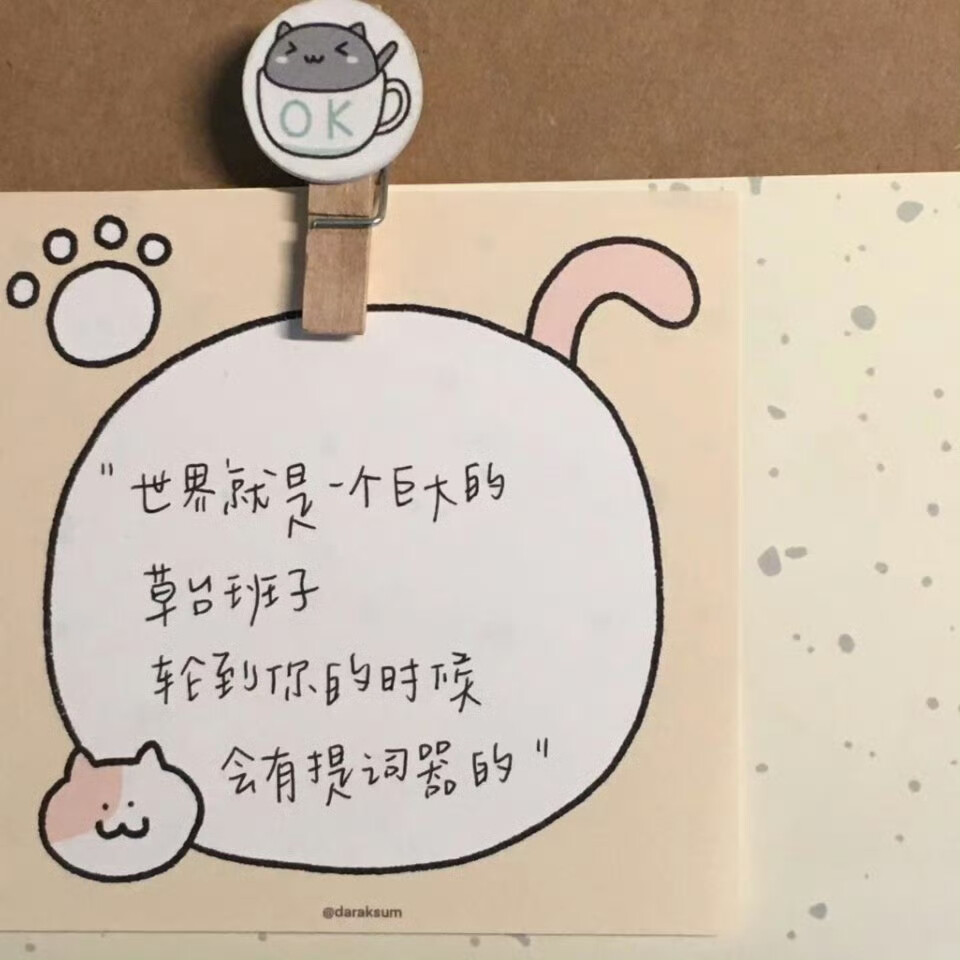 OK
"世界就是一个巨大的
草台班子
轮到你的时候
会有提词器的"
@daraksum